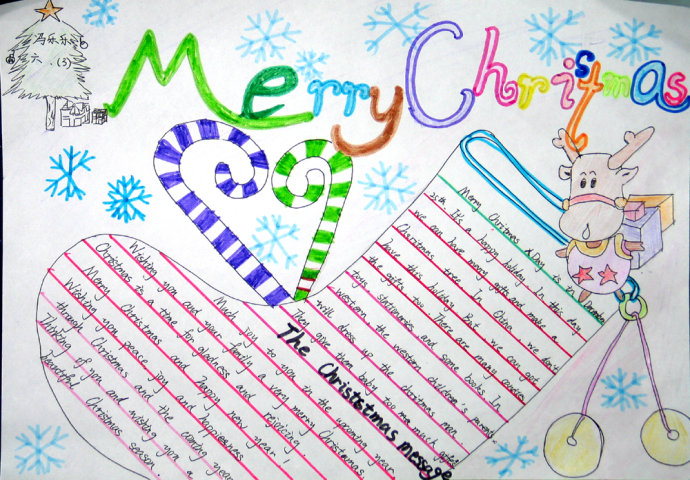 冯乐乐
六.(3)
Merry Christmas
Wishing you and your family a very merry Christmas.
Much joy to you in the upcoming year
Christmas is a time for gladness and rejoicing.
Merry Christmas and Happy new year!
Wishing you peace joy and happieness
through Christmas and the coming year
Thinking of you and wishing you a
beautiful Christmas season.
The Christstmas message
Merry Christmas Day is the December
25th It's a happy holiday In this day
we can have many gifts and make a
Christmas tree In China we don't
have this holiday But we can got
the gifts too There are many
toys stationories and some books In
western the western children's parents
will dress up the christmas man
Then give them baby too much gifts